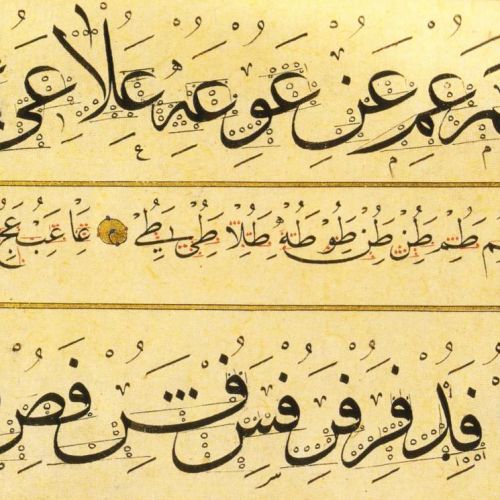 عم عن عو عه علا عى
طم طن طن طو طه طلا طى طي عا عب عج
فد فر فر فس فص